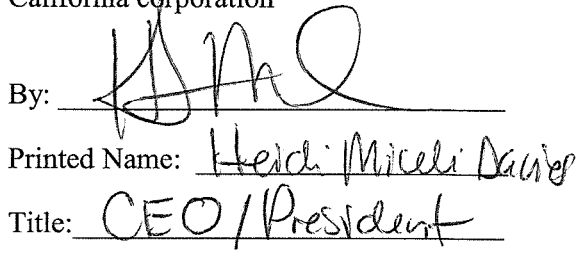 California corporation
By:
Printed Name: Heidi Miceli Davies
Title: CEO/President